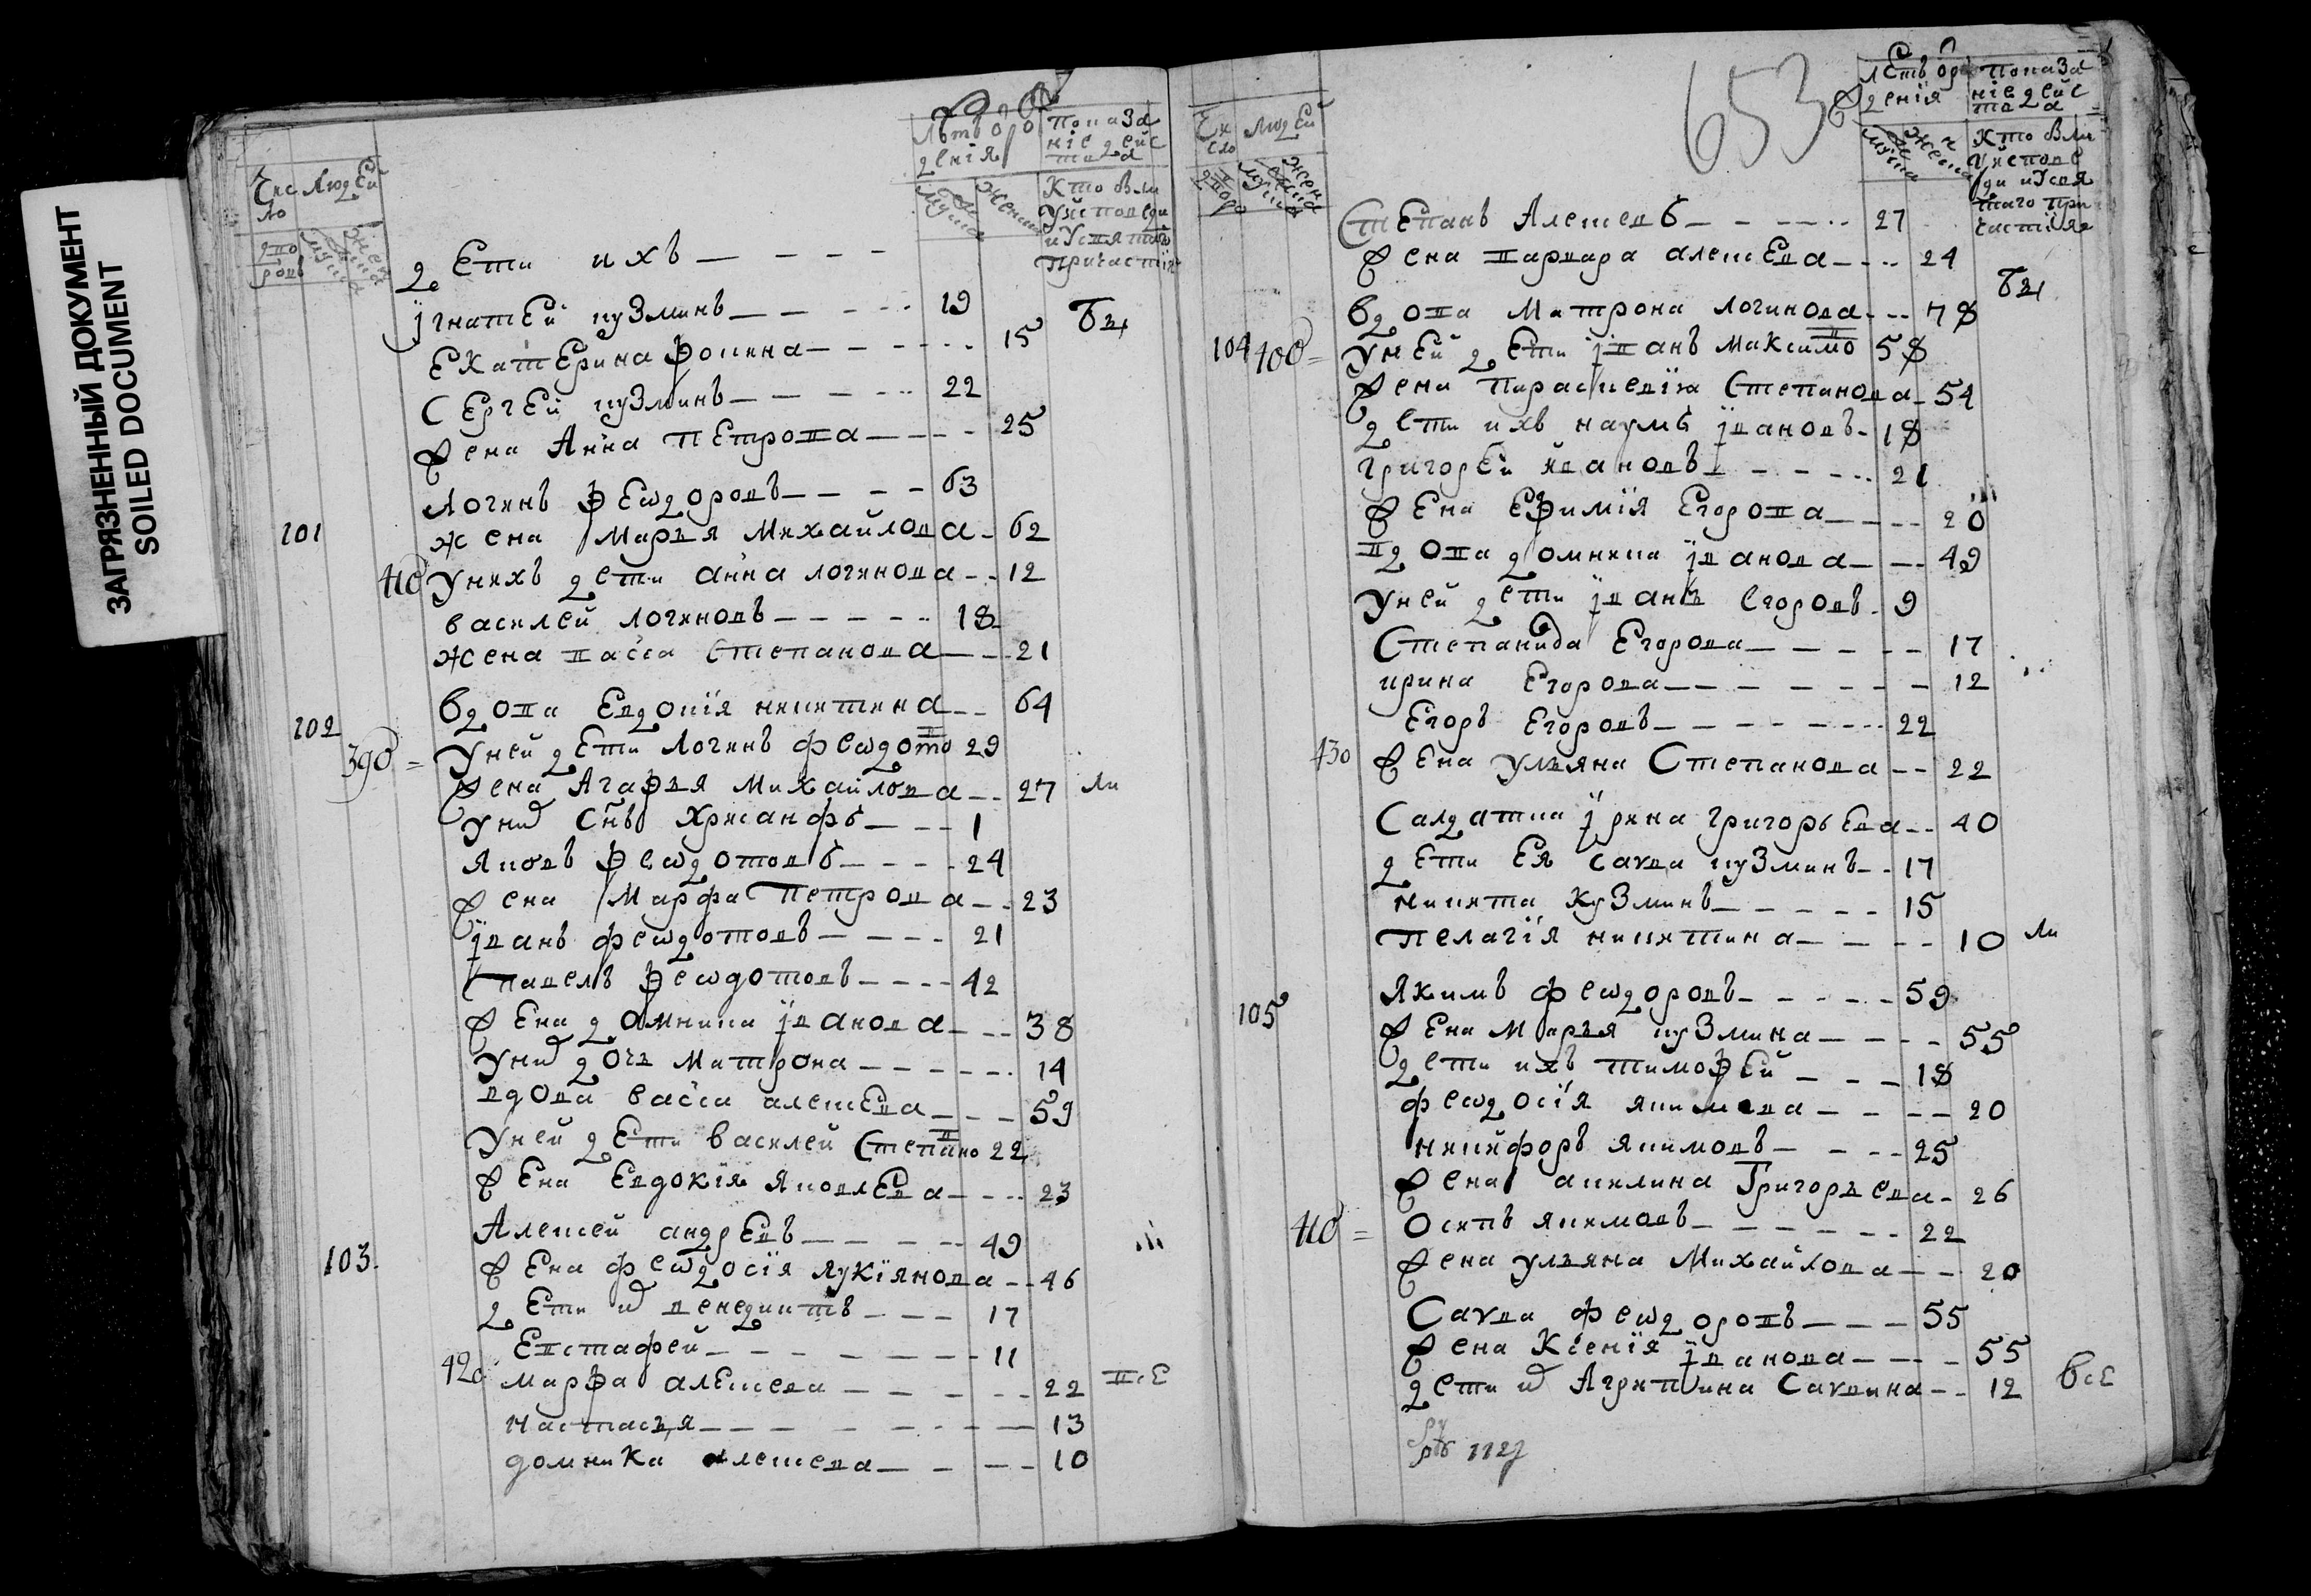 ЗАГРЯЗНЕННЫЙ ДОКУМЕНТ
SOILED DOCUMENT
Чис ло
людей
дво ровъ
мужеска
женска
лѣтъ ро
денія
мужеска
женска
показа
ніе дейс
тва
Кто были
у исповеди
и у святаго
причастія
дети ихъ
їгнатей кузминъ 19
Бы
Екатерина фокина 15
Сергей кузминъ 22
жена Анна петрова 25
101
Логинъ феѡдоровъ 63
жена Марья Михайлова 62
410 у нихъ дети анна логинова 12
василей логиновъ 18
жена васса Степанова 21
102
вдова Евдокія никитина 64
390 = у ней дети Логинъ феѡдотов 29
жена Агафья Михайлова 27
ли
у ни снъ хрисанфъ 1
яковъ феѡдотовъ 24
жена Марфа Петрова 23
їванъ феѡдотовъ 21
Павелъ феѡдотовъ 42
жена домника їванова 38
у ни дочь Матрона 14
вдова васса алеѯева 59
у ней дети василей Степанов 22
жена Евдокія яковлева 23
103
Алеѯей андреевъ 49
жена феѡдосія лукіянова 46
дети и венедиктъ 17
Евстафей 11
420 марфа алеѯева 22
все
настасья 13
домника алеѯева 10
653
Чи сло
людей
дворо
мужеска
женска
лѣтъ ро
денія
мужеска
женска
показа
ніе дейс
тва
Кто были
у исповѣ
ди и у свя
таго при
частія
Степанъ Алеѯевъ 27
жена варвара алеѯева 24
Бы
вдова Матрона логинова 78
104 400 = у ней дети їванъ Максимов 58
жена параскевїя Степанова 54
дети ихъ наумъ їановъ 18
григорей ивановъ 21
жена Ефимія Егорова 20
вдова домника їванова 49
у ней дети їванъ Егоровъ 9
Степанида Егорова 17
ирина Егорова 12
Егоръ Егоровъ 22
430 жена ульяна Степанова 22
Салдатка їрина григорьева 40
дети Ея савва кузминъ 17
никита кузминъ 15
пелагія никитина 10
ли
105
якимъ феѡдоровъ 59
жена Марья кузмина 55
дети ихъ тимофей 18
феѡдосія якимова 20
никифоръ якимовъ 25
жена акилина Григорьева 26
410 = осипъ якимовъ 22
жена ульяна Михайлова 20
Савва феѡдоровъ 55
жена Ксенія їванова 55
дети и Агрипина Саввина 12
все